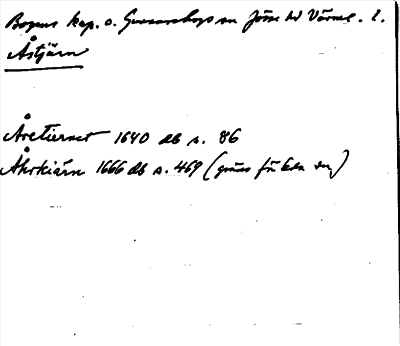 Bogens kap. o. Gunnarskogs sn Jösse hd Värml. l.
Åstjärn
Åretiernet 1640 db s. 86
Åhrkiärn 1666 db s. 469 (gräns för